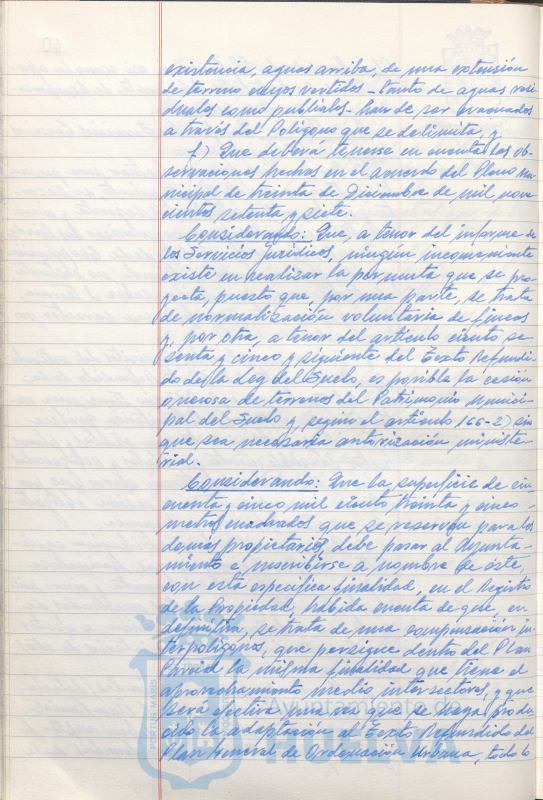 existencia, aguas arriba, de una extensión
de terreno cuyos vertidos - tanto de aguas resi
duales como publiales - han de ser evacuados
a través del Polígono que se delimita, y
f) Que deberá tenerse en cuenta las ob-
servaciones hechas en el acuerdo del Pleno Mu-
nicipal de treinta de Diciembre de mil nove
cientos setenta y siete.
Considerando: Que, a tenor del informe de
los Servicios Jurídicos, ningún inconveniente
existe en realizar la permuta que se pro-
yecta, puesto que, por una parte, se trata
de normalización voluntaria de fincas
y, por otra, a tenor del artículo ciento se-
senta y cinco y siguiente del Texto Refundi-
do de la Ley del Suelo, es posible la cesión
onerosa de terrenos del Patrimonio Munici-
pal del Suelo y, según el artículo 166-2) sin
que sea necesaria autorización ministe-
rial.
Considerando: Que la superficie de cin
cuenta y cinco mil ciento treinta y cinco -
metros cuadrados que se reservan para los
demás propietarios, debe pasar al Ayunta-
miento e inscribirse a nombre de éste,
con esta específica finalidad, en el Registro
de la Propiedad, habida cuenta de que, en
definitiva, se trata de una compensación in-
terpolígonos, que persigue dentro del Plan
Parcial la misma finalidad que tiene el
aprovechamiento medio intersectores, y que
será efectiva una vez que se haya produ-
cido la adaptación al Texto Refundido del
Plan General de Ordenación Urbana, todo lo
PORTUS MARIS
Ayuntamiento de